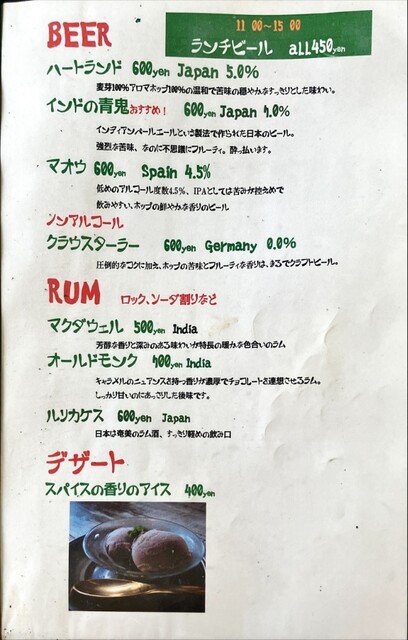 BEER
11 00~15 00
ランチビール all450yen
ハートランド 600yen Japan 5.0%
麦芽100%アロマホップ100%の温和で苦味の穏やかなすっきりとした味わい。
インドの青鬼おすすめ! 600yen Japan 7.0%
インディアンペールエールという製法で作られた日本のビール。
強烈な苦味、なのに不思議にフルーティ。酔っ払います。
マオウ 600yen Spain 4.5%
低めのアルコール度数4.5%、IPAとしては苦みが控えめで
飲みやすい、ホップの鮮やかな香りのビール
ノンアルコール
クラウスターラー 600yen Germany 0.0%
圧倒的なコクに加え、ホップの苦味とフルーティな香りは、まるでクラフトビール。
RUM ロック、ソーダ割りなど
マクダウェル 500yen India
芳醇な香りと深みのある味わいが特長の暖かな色合いのラム
オールドモンク 700yen India
キャラメルのニュアンスを持つ香りが濃厚でチョコレートを連想させるラム。
しっかり甘いのにあっさりした後味です。
ルリカケス 600yen Japan
日本は奄美のラム酒、すっきり軽めの飲み口
デザート
スパイスの香りのアイス 400yen